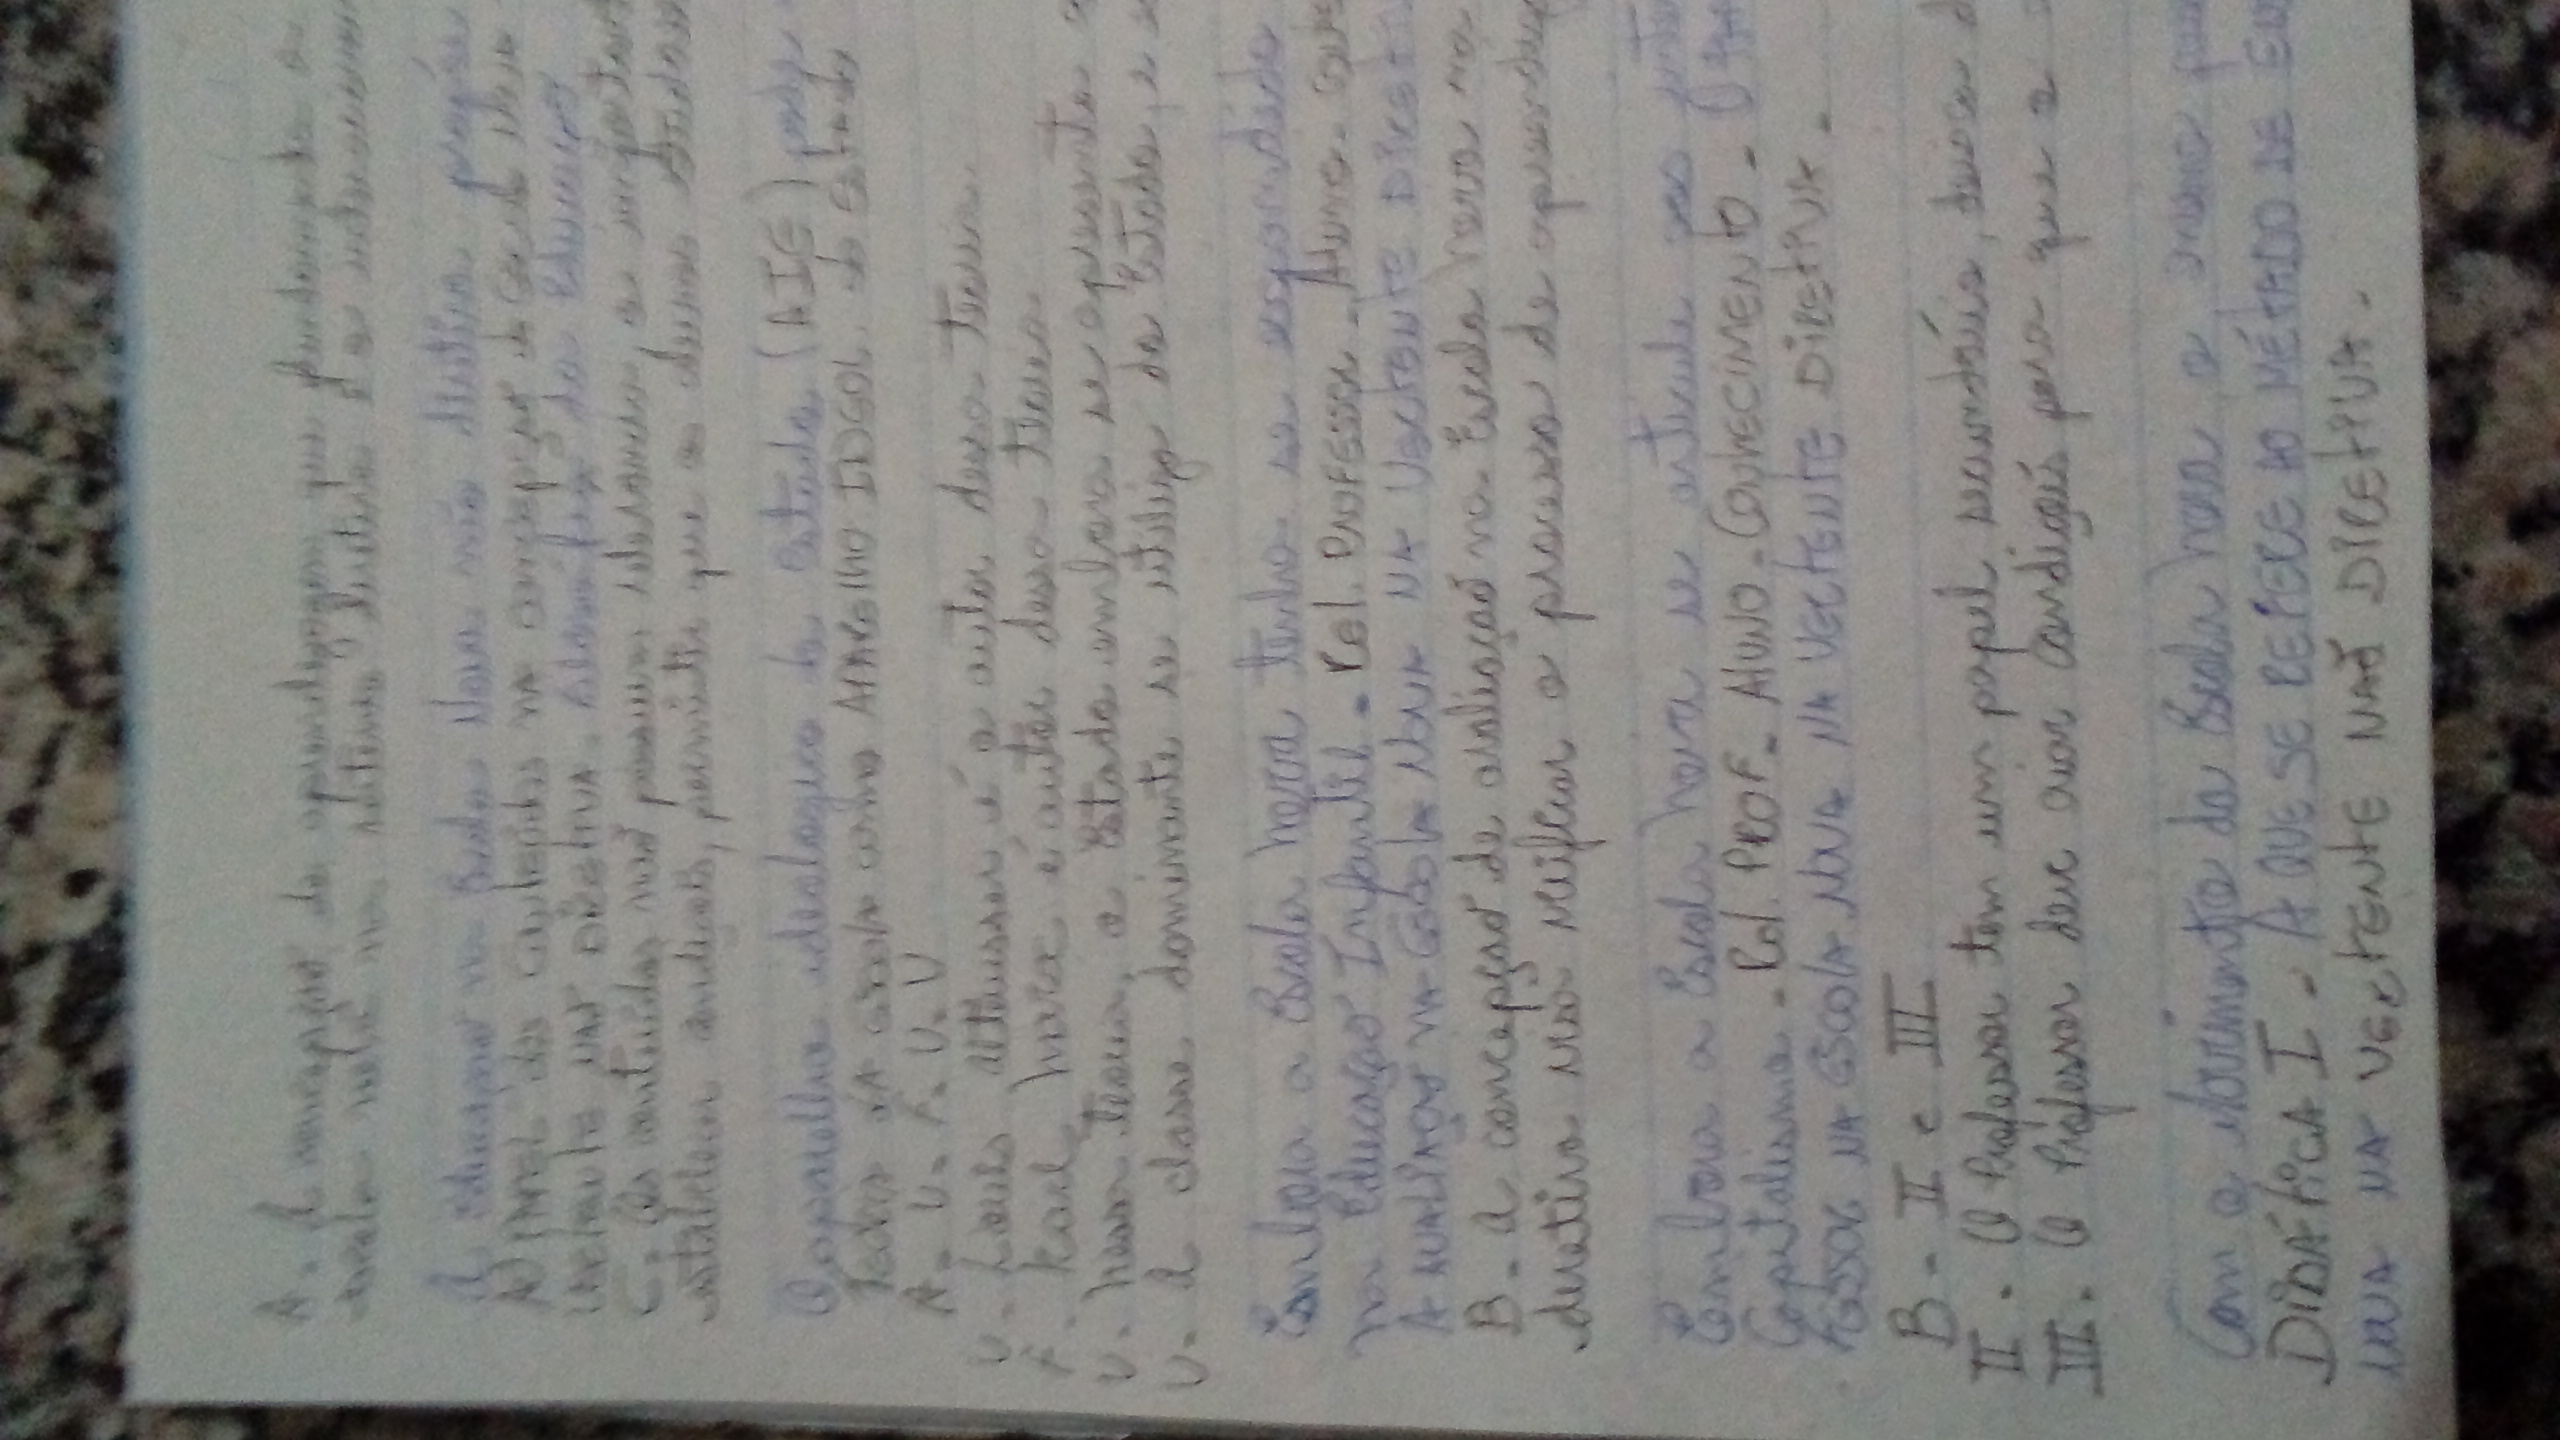 A - A concepção de aprendizagem que fundamenta a
escola nova na vertente diretiva é o
A Educação na Escola Nova não diretiva
A) PAPEL dos Conteúdos NA concepção da Escola Nova
VERTENTE NAO DIRETIVA. da Educação
C. Os conteúdos não possuem relevancia, o importante
estabelecer condições, permitir que o aluno
O aparelho ideologico do Estado (AIE) pode
Teoria dA Escola como APARELHO IDEOL. do Estado
A - V - F - V - V
V - Louis Althusser é o autor dessa teoria
F - Karl Marx é autor dessa teoria
V - Nessa teoria, o Estado embora se apresenta
V - A classe dominante se utiliza do Estado, e
Embora a Escola Nova tenha se expandido
na Educação Infantil - Rel. PROFESSOR - Aluno -
A AVALIAÇÃO NA ESCOLA NOVA NA VERTENTE
B - A concepção de avaliação na Escola Nova na
diretiva visa verificar o processo de
Embora a Escola Nova se articule aos
Capitalismo - Rel. PROF - ALUNO - CONHECIMENTO - O
FESSOR NA ESCOLA NOVA NA VERTENTE DIRETIVA -
B - II e III
II - O Professor tem um papel secundário, deixa
III - O Professor deve criar condições para que o
Com o Movimento da Escola Nova o
DIDÁTICA I - A QUE SE REFERE AO MÉTADO DE
NOVA NA VERTENTE NAÕ DIRETIVA -